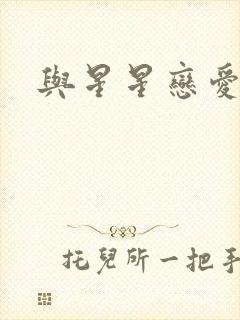 與星星戀愛
托兒所一把手